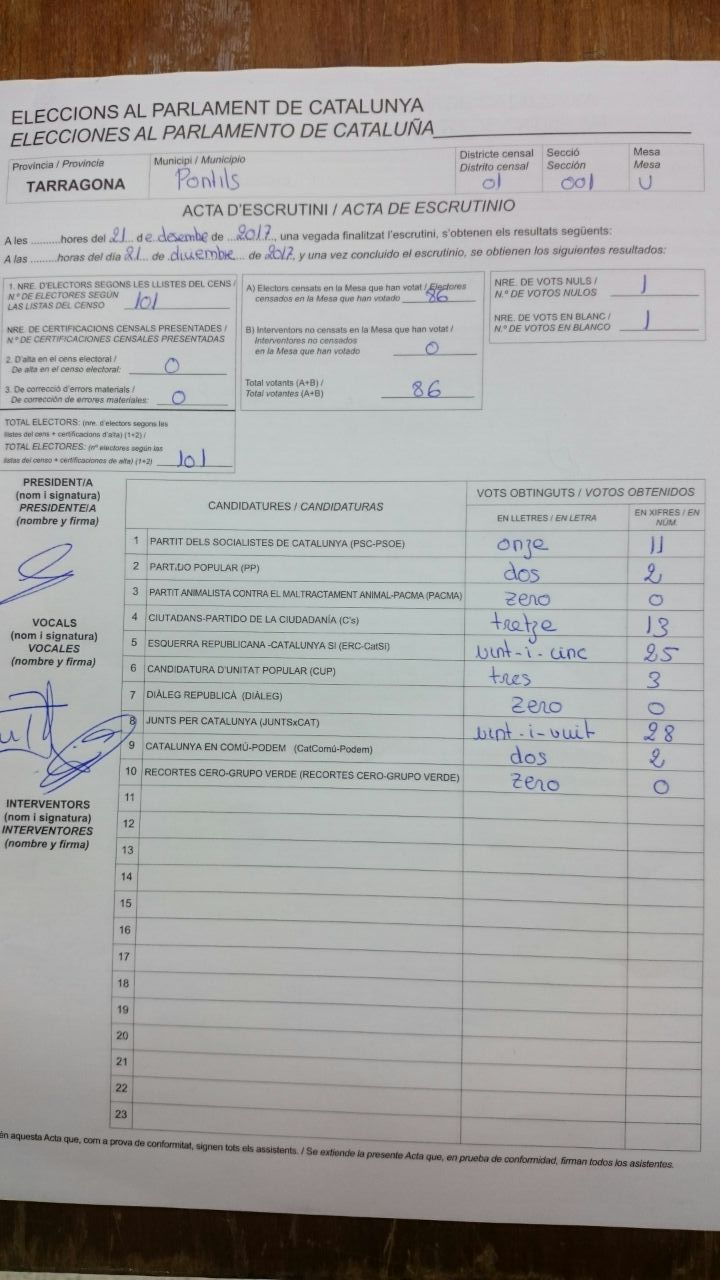 ELECCIONS AL PARLAMENT DE CATALUNYA
ELECCIONES AL PARLAMENTO DE CATALUÑA
Província / Provincia Municipi / Municipio Districte censal Secció Mesa
Distrito censal Sección Mesa
TARRAGONA Pontils 01 001 U
ACTA D'ESCRUTINI / ACTA DE ESCRUTINIO
A les .........hores del 21 de desembre de 2017, una vegada finalitzat l'escrutini, s'obtenen els resultats següents:
A las .........horas del día 21 de diciembre de 2017, y una vez concluido el escrutinio, se obtienen los siguientes resultados:
1. NRE. D'ELECTORS SEGONS LES LLISTES DEL CENS /
N.º DE ELECTORES SEGÚN
LAS LISTAS DEL CENSO 101
NRE. DE CERTIFICACIONS CENSALS PRESENTADES /
N.º DE CERTIFICACIONES CENSALES PRESENTADAS
2. D'alta en el cens electoral /
De alta en el censo electoral: 0
3. De correcció d'errors materials /
De corrección de errores materiales: 0
TOTAL ELECTORS: (nre. d'electors segons les
llistes del cens + certificacions d'alta) (1+2) /
TOTAL ELECTORES: (nº electores según las
listas del censo + certificaciones de alta) (1+2) 101
A) Electors censats en la Mesa que han votat / Electores
censados en la Mesa que han votado 86
B) Interventors no censats en la Mesa que han votat /
Interventores no censados
en la Mesa que han votado 0
Total votants (A+B) /
Total votantes (A+B) 86
NRE. DE VOTS NULS /
N.º DE VOTOS NULOS 1
NRE. DE VOTS EN BLANC /
N.º DE VOTOS EN BLANCO 1
PRESIDENT/A
(nom i signatura)
PRESIDENTE/A
(nombre y firma)
VOCALS
(nom i signatura)
VOCALES
(nombre y firma)
INTERVENTORS
(nom i signatura)
INTERVENTORES
(nombre y firma)
CANDIDATURES / CANDIDATURAS VOTS OBTINGUTS / VOTOS OBTENIDOS
EN LLETRES / EN LETRA EN XIFRES / EN NÚM.
1 PARTIT DELS SOCIALISTES DE CATALUNYA (PSC-PSOE) onze 11
2 PARTIDO POPULAR (PP) dos 2
3 PARTIT ANIMALISTA CONTRA EL MALTRACTAMENT ANIMAL-PACMA (PACMA) zero 0
4 CIUTADANS-PARTIDO DE LA CIUDADANÍA (C's) tretze 13
5 ESQUERRA REPUBLICANA -CATALUNYA SÍ (ERC-CatSí) vint-i-cinc 25
6 CANDIDATURA D'UNITAT POPULAR (CUP) tres 3
7 DIÀLEG REPUBLICÀ (DIÀLEG) zero 0
8 JUNTS PER CATALUNYA (JUNTSxCAT) vint-i-vuit 28
9 CATALUNYA EN COMÚ-PODEM (CatComú-Podem) dos 2
10 RECORTES CERO-GRUPO VERDE (RECORTES CERO-GRUPO VERDE) zero 0
11
12
13
14
15
16
17
18
19
20
21
22
23
én aquesta Acta que, com a prova de conformitat, signen tots els assistents. / Se extiende la presente Acta que, en prueba de conformidad, firman todos los asistentes.